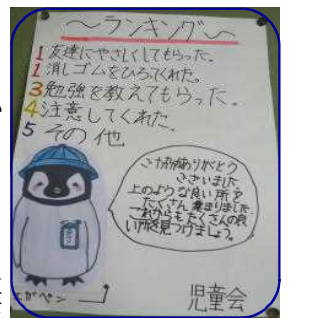 ～ランキング～
1 友達にやさしくしてもらった。
1 消しゴムをひろってくれた。
3 勉強を教えてもらった。
4 注意してくれた。
5 その他
ありがとう
ございました。
上のような良い所を
たくさん集まりました
これからもたくさんの良
い所を見つけましょう。
児童会